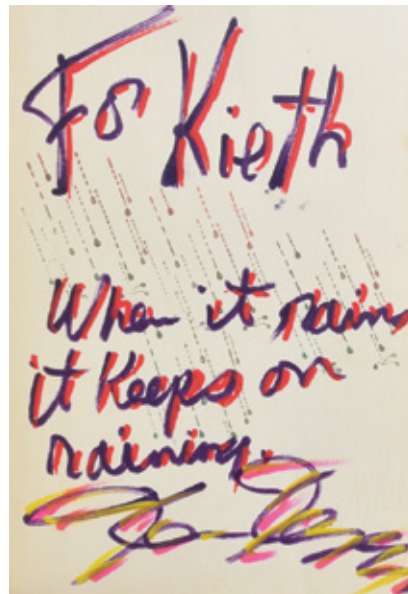 For Kieth
When it rains
it Keeps on
raining.